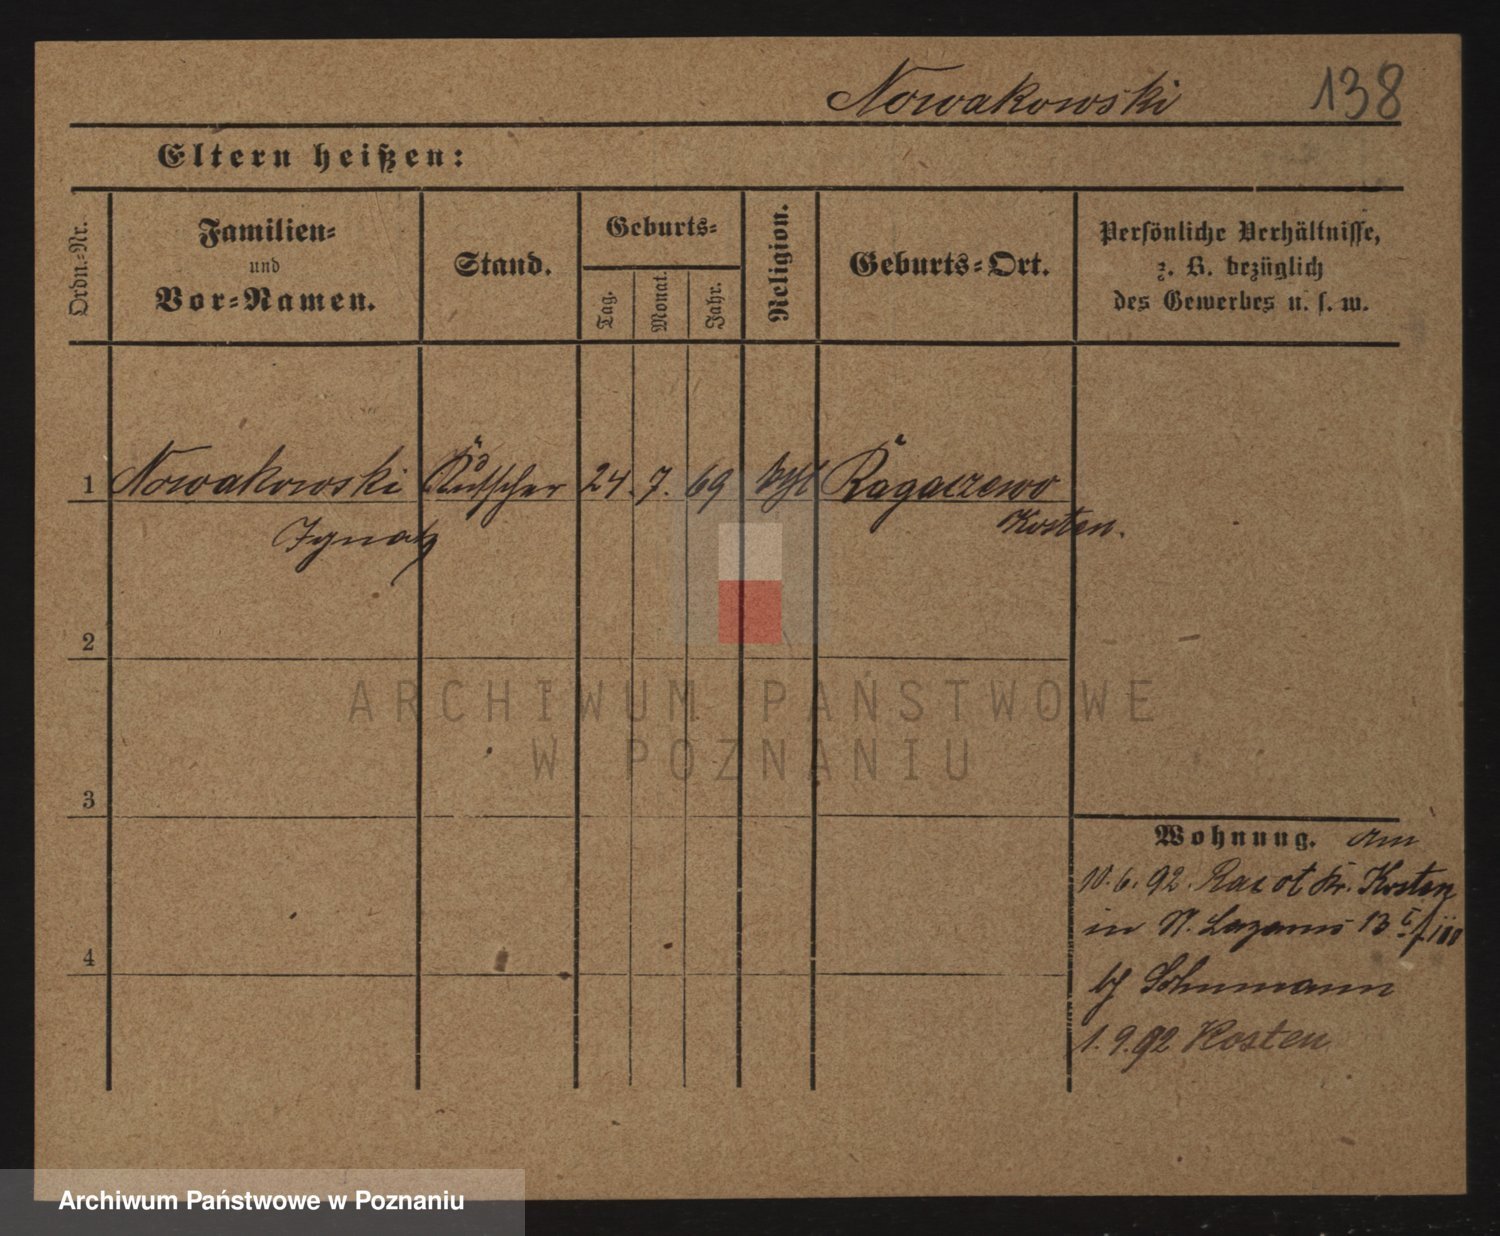 Nowakowski 138
Eltern heißen:
Ordn.-Nr.
Familien-
und
Vor-Namen.
Stand.
Geburts-
Tag.
Monat.
Jahr.
Religion.
Geburts-Ort.
Persönliche Verhältnisse,
z. B. bezüglich
des Gewerbes u. s. w.
1 Nowakowski Kutscher 24. 7. 69 Ragaczewo
Ignatz Kosten.
2
ARCHIWUM PAŃSTWOWE
W POZNANIU
3
Wohnung. am
10.6.92. Racot Kr. Kosten
in St. Lazarus 13
bei Schumann
4
1.9.92 Kosten
Archiwum Państwowe w Poznaniu